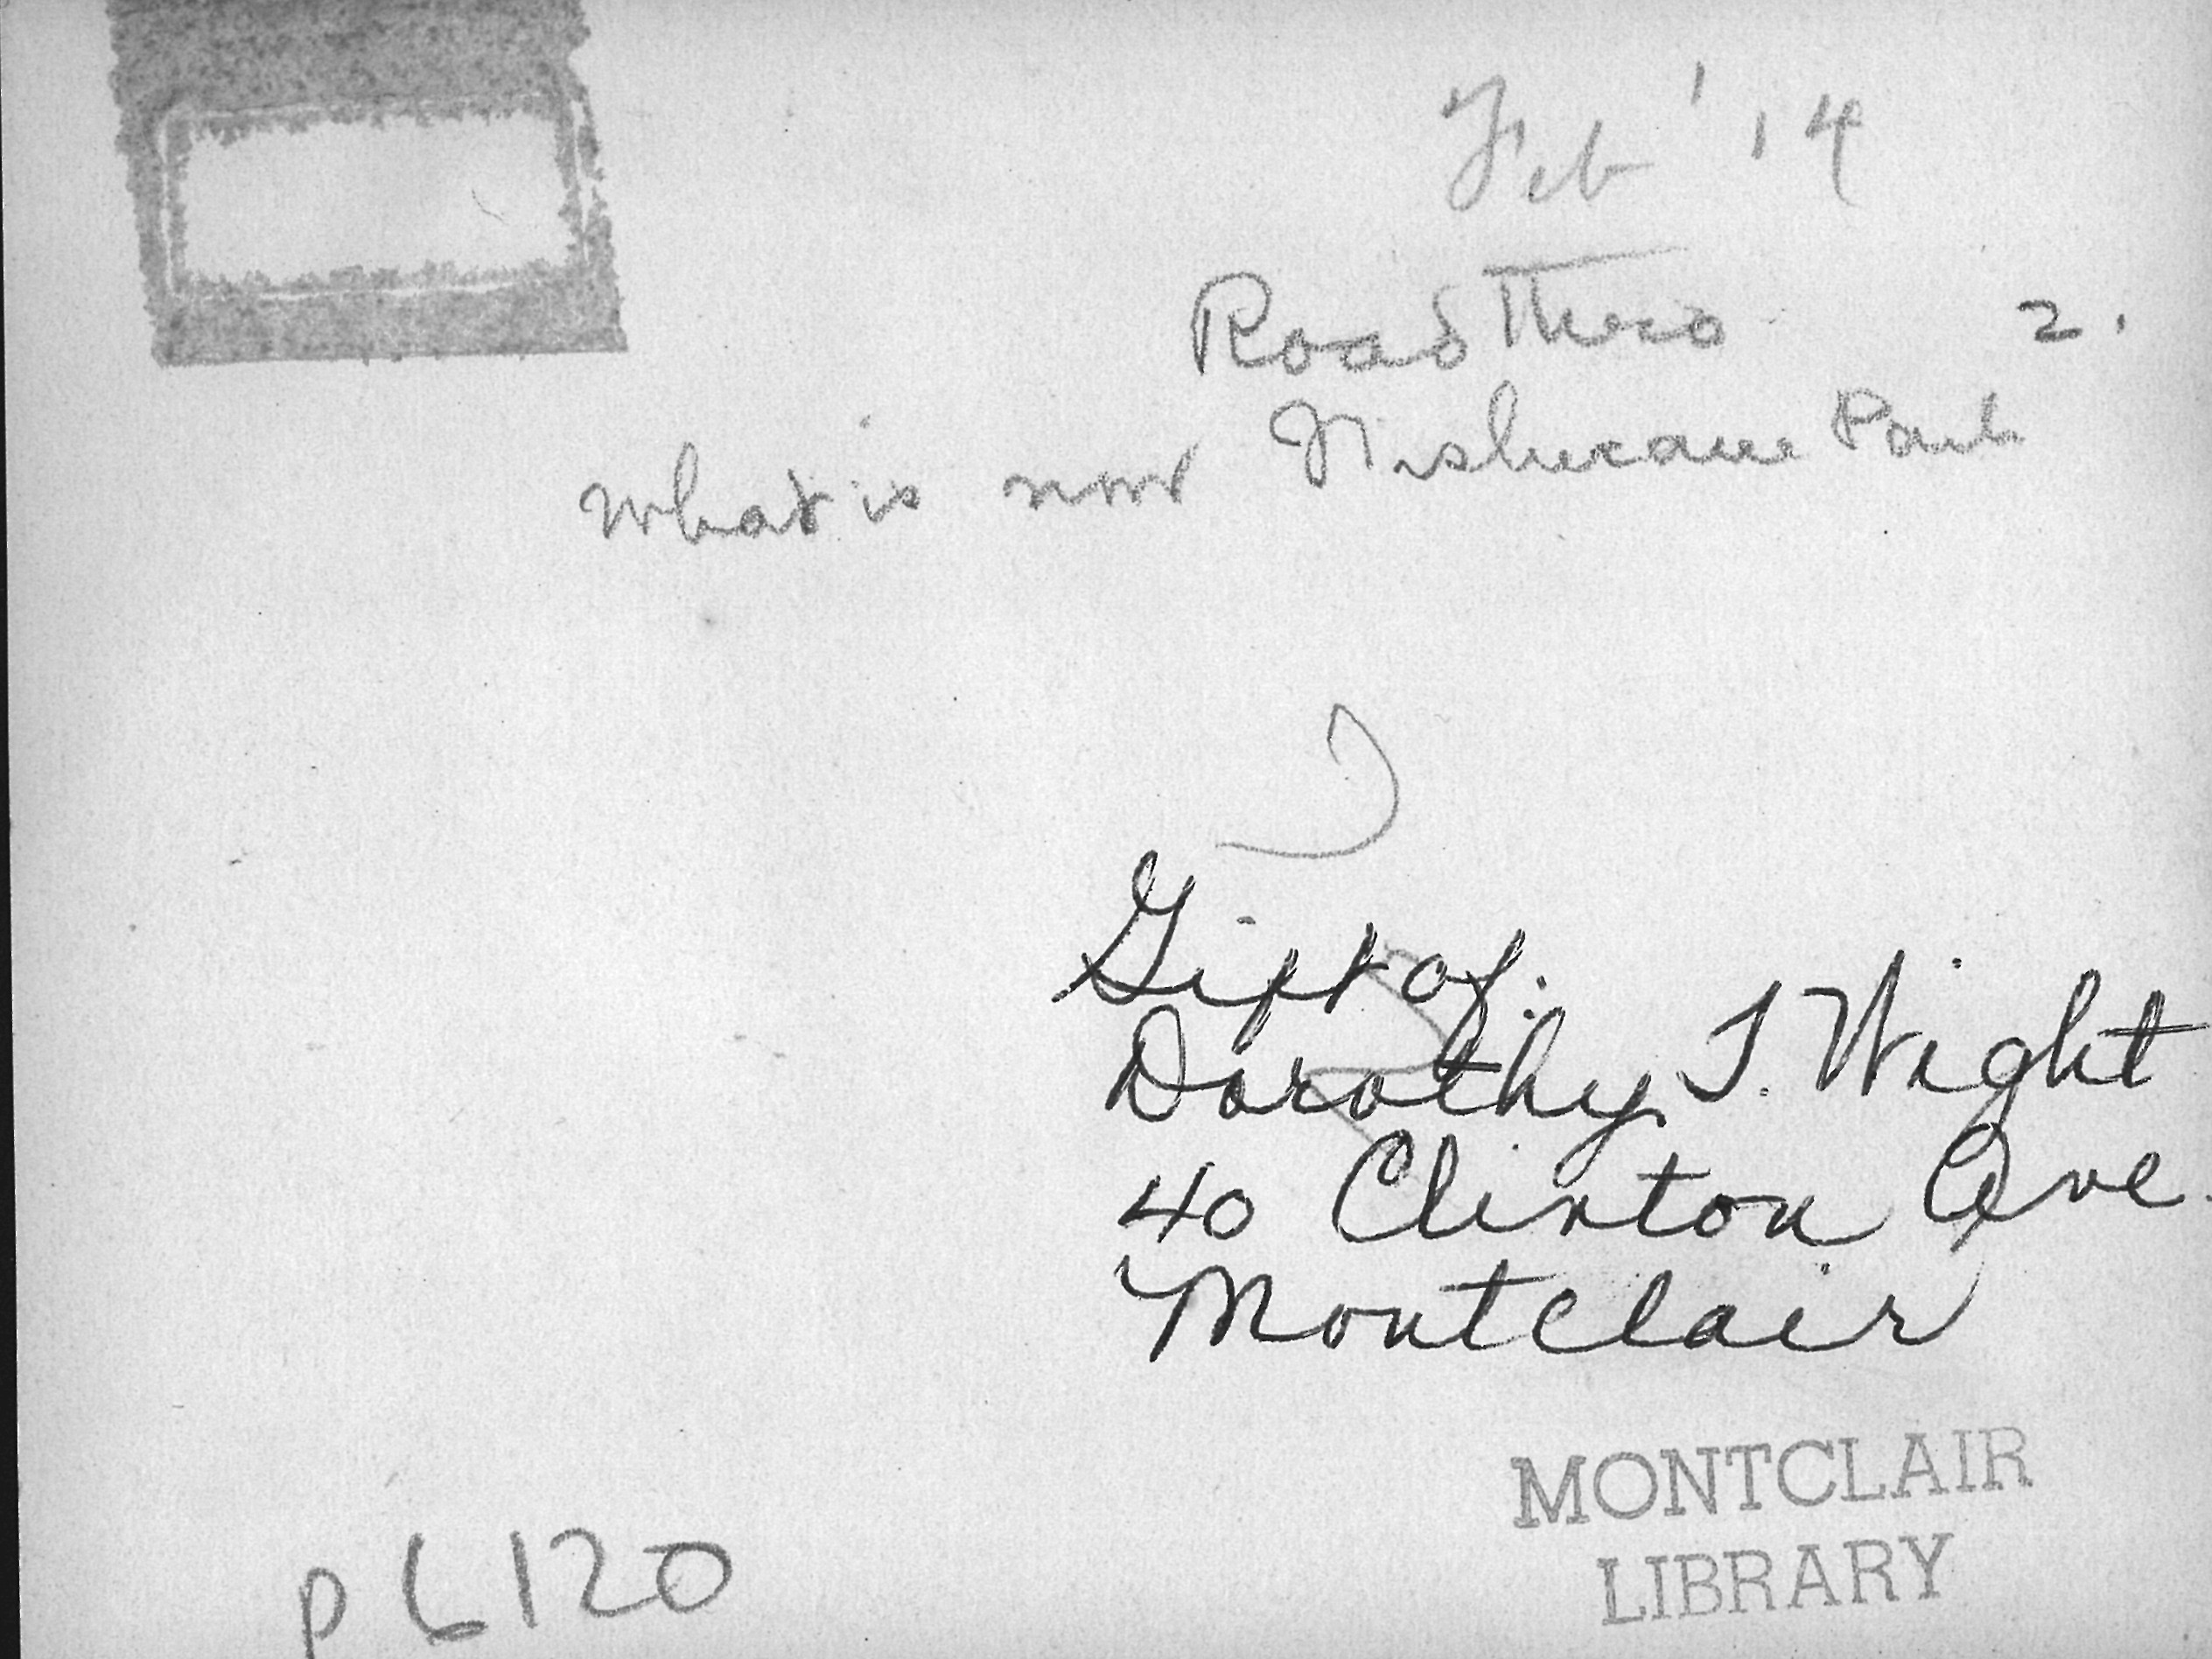 Feb '14
Road Thro 2.
what is now Nishuane Park
Gift of:
Dorothy T. Wight
40 Clinton Ave.
Montclair
MONTCLAIR
LIBRARY
p 6120